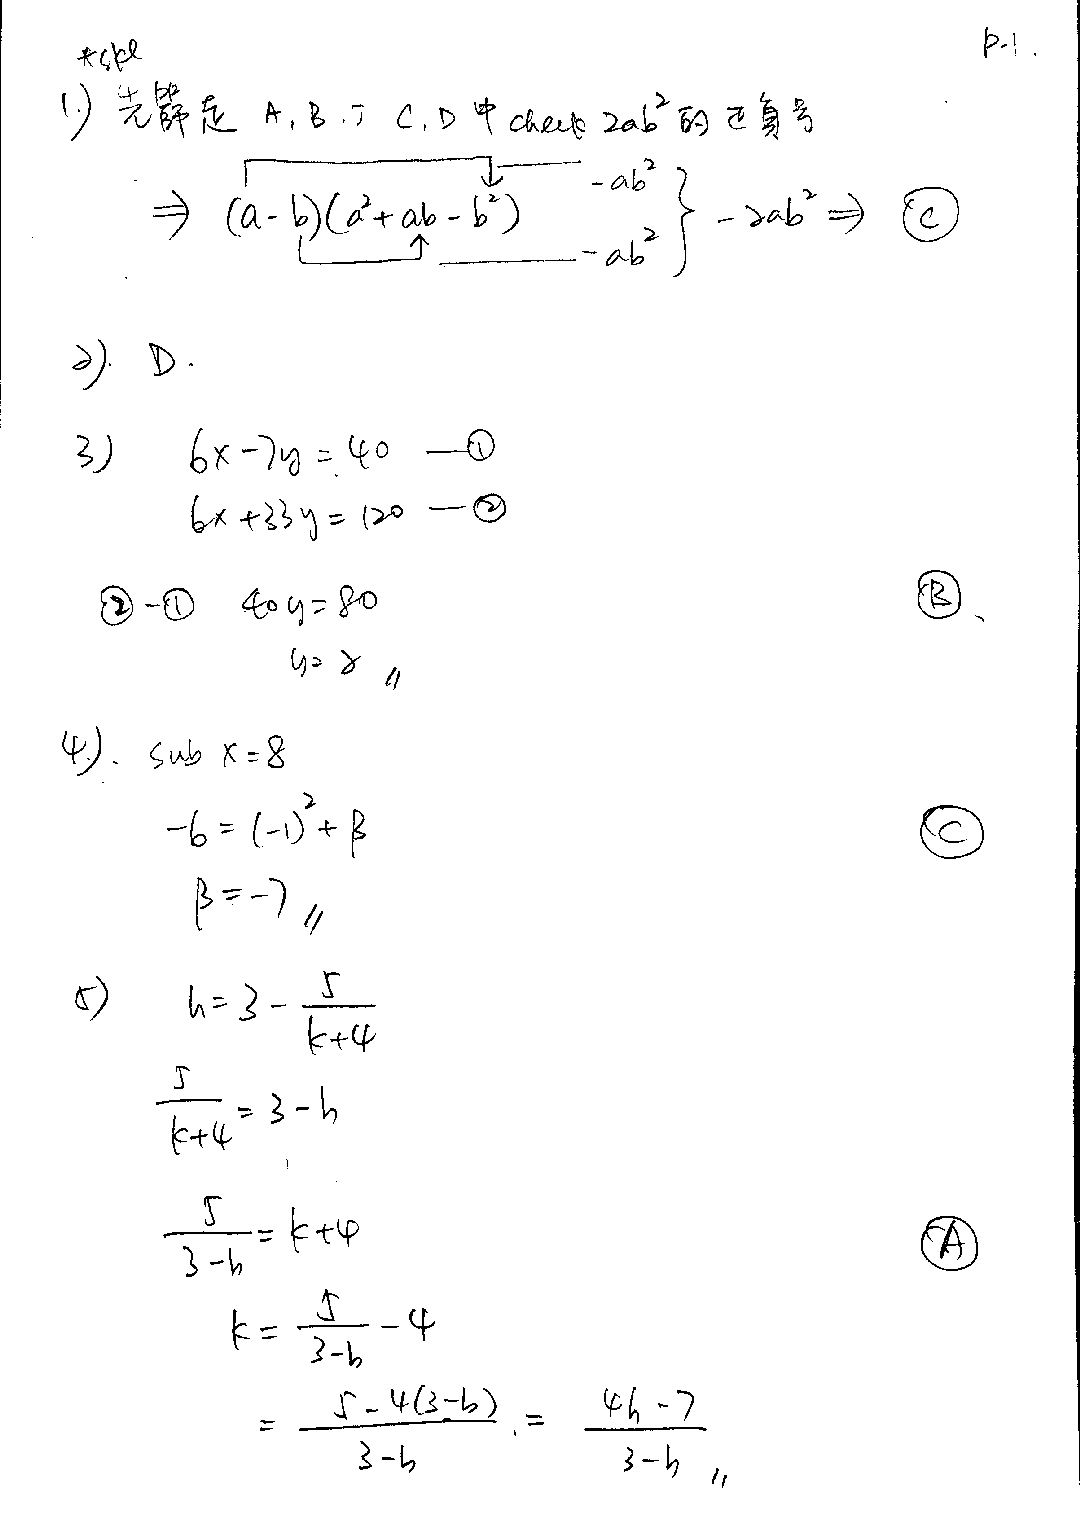 p.1.
1.) 先篩走 A, B. 于 C, D 中 check 2ab² 的正負号
⇒ (a-b)(a²+ab-b²) -ab² -ab² } -2ab² ⇒ Ⓒ
2). D.
3) 6x-7y=40 —①
6x+33y=120 —②
②-① 40y=80 Ⓑ
y=2 〃
4.). sub x=8
-6=(-1)²+β Ⓒ
β=-7 〃
5) h=3-5/(k+4)
5/(k+4)=3-h
5/(3-h)=k+4 Ⓐ
k=5/(3-h)-4
=(5-4(3-h))/(3-h)=(4h-7)/(3-h) 〃